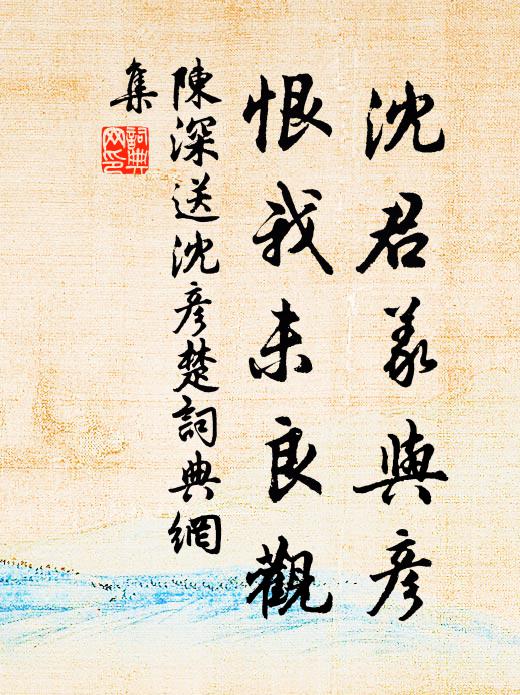 沈君羕與彥
恨我未良觀
陳深送沈彥楚詞典網
集
詞典网印